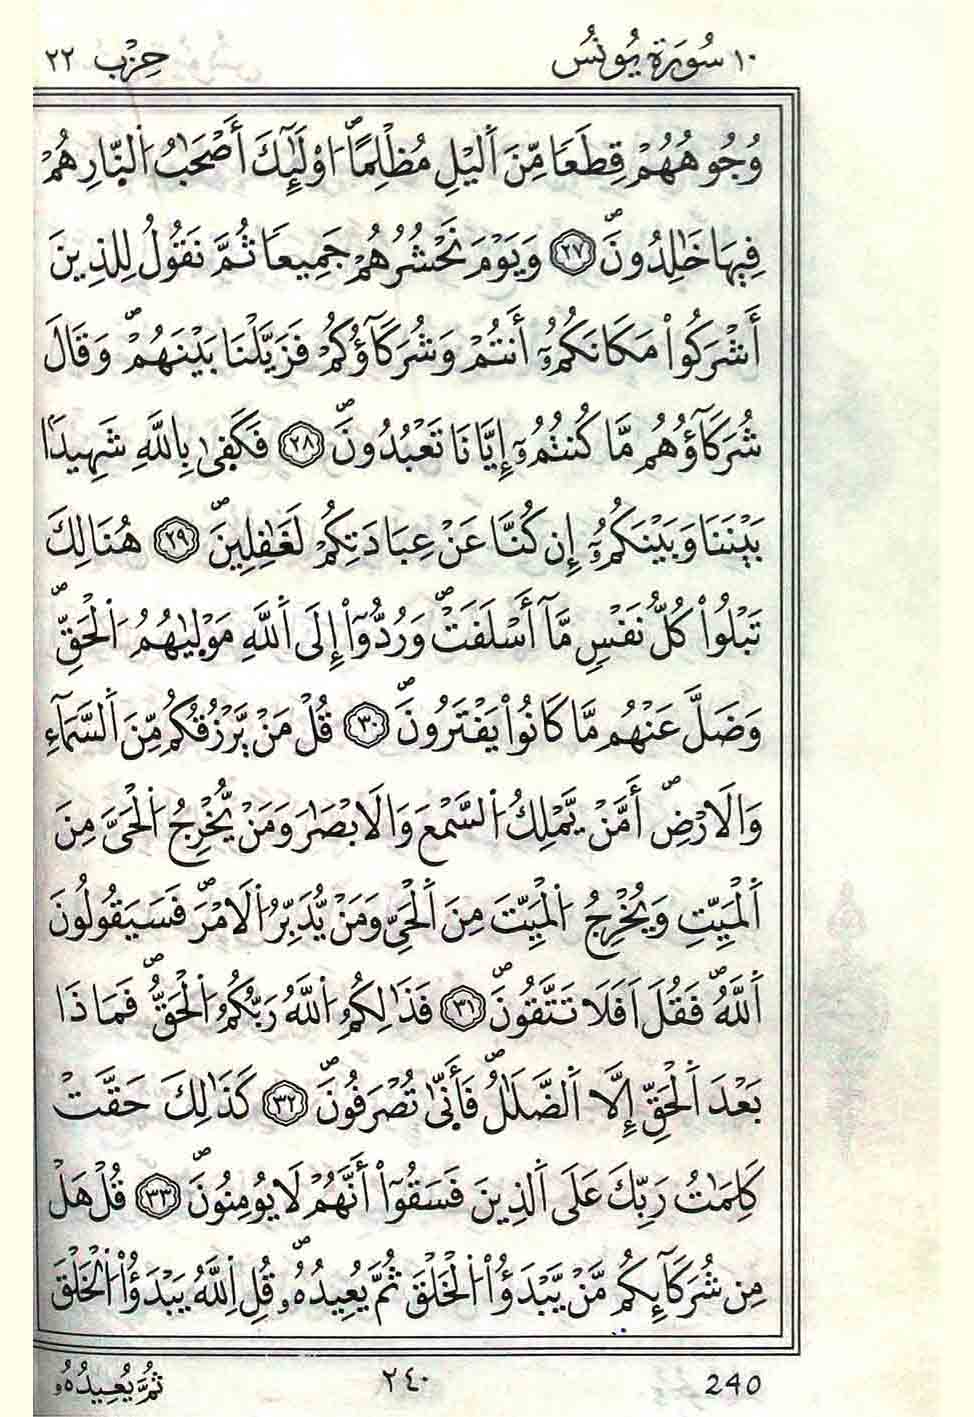 ١٠ سُورَةُ يُونُسَ حِزْب ٢٢
وُجُوهُهُمْ قِطَعاً مِّنَ اَ۬ليْلِ مُظْلِماًۖ ا۟وْلَٰٓئِكَ أَصْحَٰبُ اُ۬لنّ۪ارِ هُمْ
فِيهَا خَٰلِدُونَۖ ٢٧ وَيَوْمَ نَحْشُرُهُمْ جَمِيعاً ثُمَّ نَقُولُ لِلذِينَ
أَشْرَكُواْ مَكَانَكُمُۥٓ أَنتُمْ وَشُرَكَآؤُكُمْ فَزَيَّلْنَا بَيْنَهُمْۖ وَقَالَ
شُرَكَآؤُهُم مَّا كُنتُمُۥٓ إِيَّانَا تَعْبُدُونَۖ ٢٨ فَكَف۪ىٰ بِاللَّهِ شَهِيداَۢ
بَيْنَنَا وَبَيْنَكُمُۥٓ إِن كُنَّا عَنْ عِبَادَتِكُمْ لَغَٰفِلِينَۖ ٢٩ هُنَالِكَ
تَبْلُواْ كُلُّ نَفْسٍ مَّآ أَسْلَفَتْۖ وَرُدُّوٓاْ إِلَى اَ۬للَّهِ مَوْل۪يٰهُمُ اُ۬لْحَقِّۖ
وَضَلَّ عَنْهُم مَّا كَانُواْ يَفْتَرُونَۖ ٣٠ قُلْ مَنْ يَّرْزُقُكُم مِّنَ اَ۬لسَّمَآءِ
وَالَارْضِۖ أَمَّنْ يَّمْلِكُ اُ۬لسَّمْعَ وَالَابْصَٰرَ وَمَنْ يُّخْرِجُ اُ۬لْحَيَّ مِنَ
اَ۬لْمَيِّتِ وَيُخْرِجُ اُ۬لْمَيِّتَ مِنَ اَ۬لْحَيِّ وَمَنْ يُّدَبِّرُ اُ۬لَامْرَۖ فَسَيَقُولُونَ
اَ۬للَّهُۖ فَقُلَ اَفَلَا تَتَّقُونَۖ ٣١ فَذَٰلِكُمُ اُ۬للَّهُ رَبُّكُمُ اُ۬لْحَقُّۖ فَمَاذَا
بَعْدَ اَ۬لْحَقِّ إِلَّا اَ۬لضَّلَٰلُۖ فَأَنّ۪ىٰ تُصْرَفُونَۖ ٣٢ كَذَٰلِكَ حَقَّتْ
كَلِمَٰتُ رَبِّكَ عَلَى اَ۬لذِينَ فَسَقُوٓاْ أَنَّهُمْ لَا يُومِنُونَۖ ٣٣ قُلْ هَلْ
مِن شُرَكَآئِكُم مَّنْ يَّبْدَؤُاْ اُ۬لْخَلْقَ ثُمَّ يُعِيدُهُۥۖ قُلِ اِ۬للَّهُ يَبْدَؤُاْ اُ۬لْخَلْقَ
ثُمَّ يُعِيدُهُۥ ٢٤٠ 240